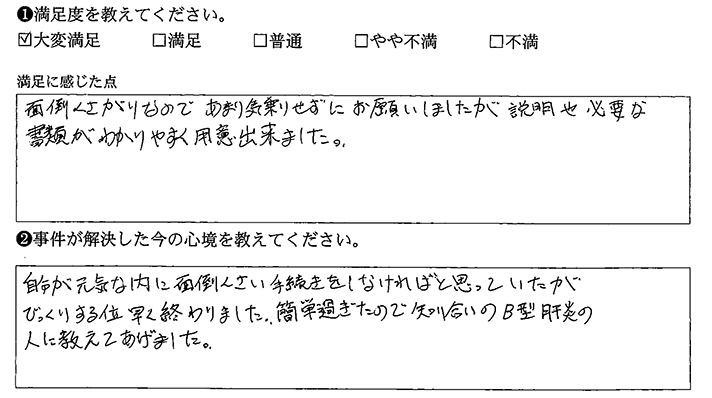 ❶満足度を教えてください。
☑大変満足 □満足 □普通 □やや不満 □不満
満足に感じた点
面倒くさがりなので あまり気乗りせずに お願いしましたが 説明や 必要な
書類が わかりやすく 用意出来ました。
❷事件が解決した今の心境を教えてください。
自分が元気な内に面倒くさい手続きをしなければと思っていたが
びっくりする位 早く終わりました。簡単過ぎたので 知り合いのB型肝炎の
人に教えてあげました。